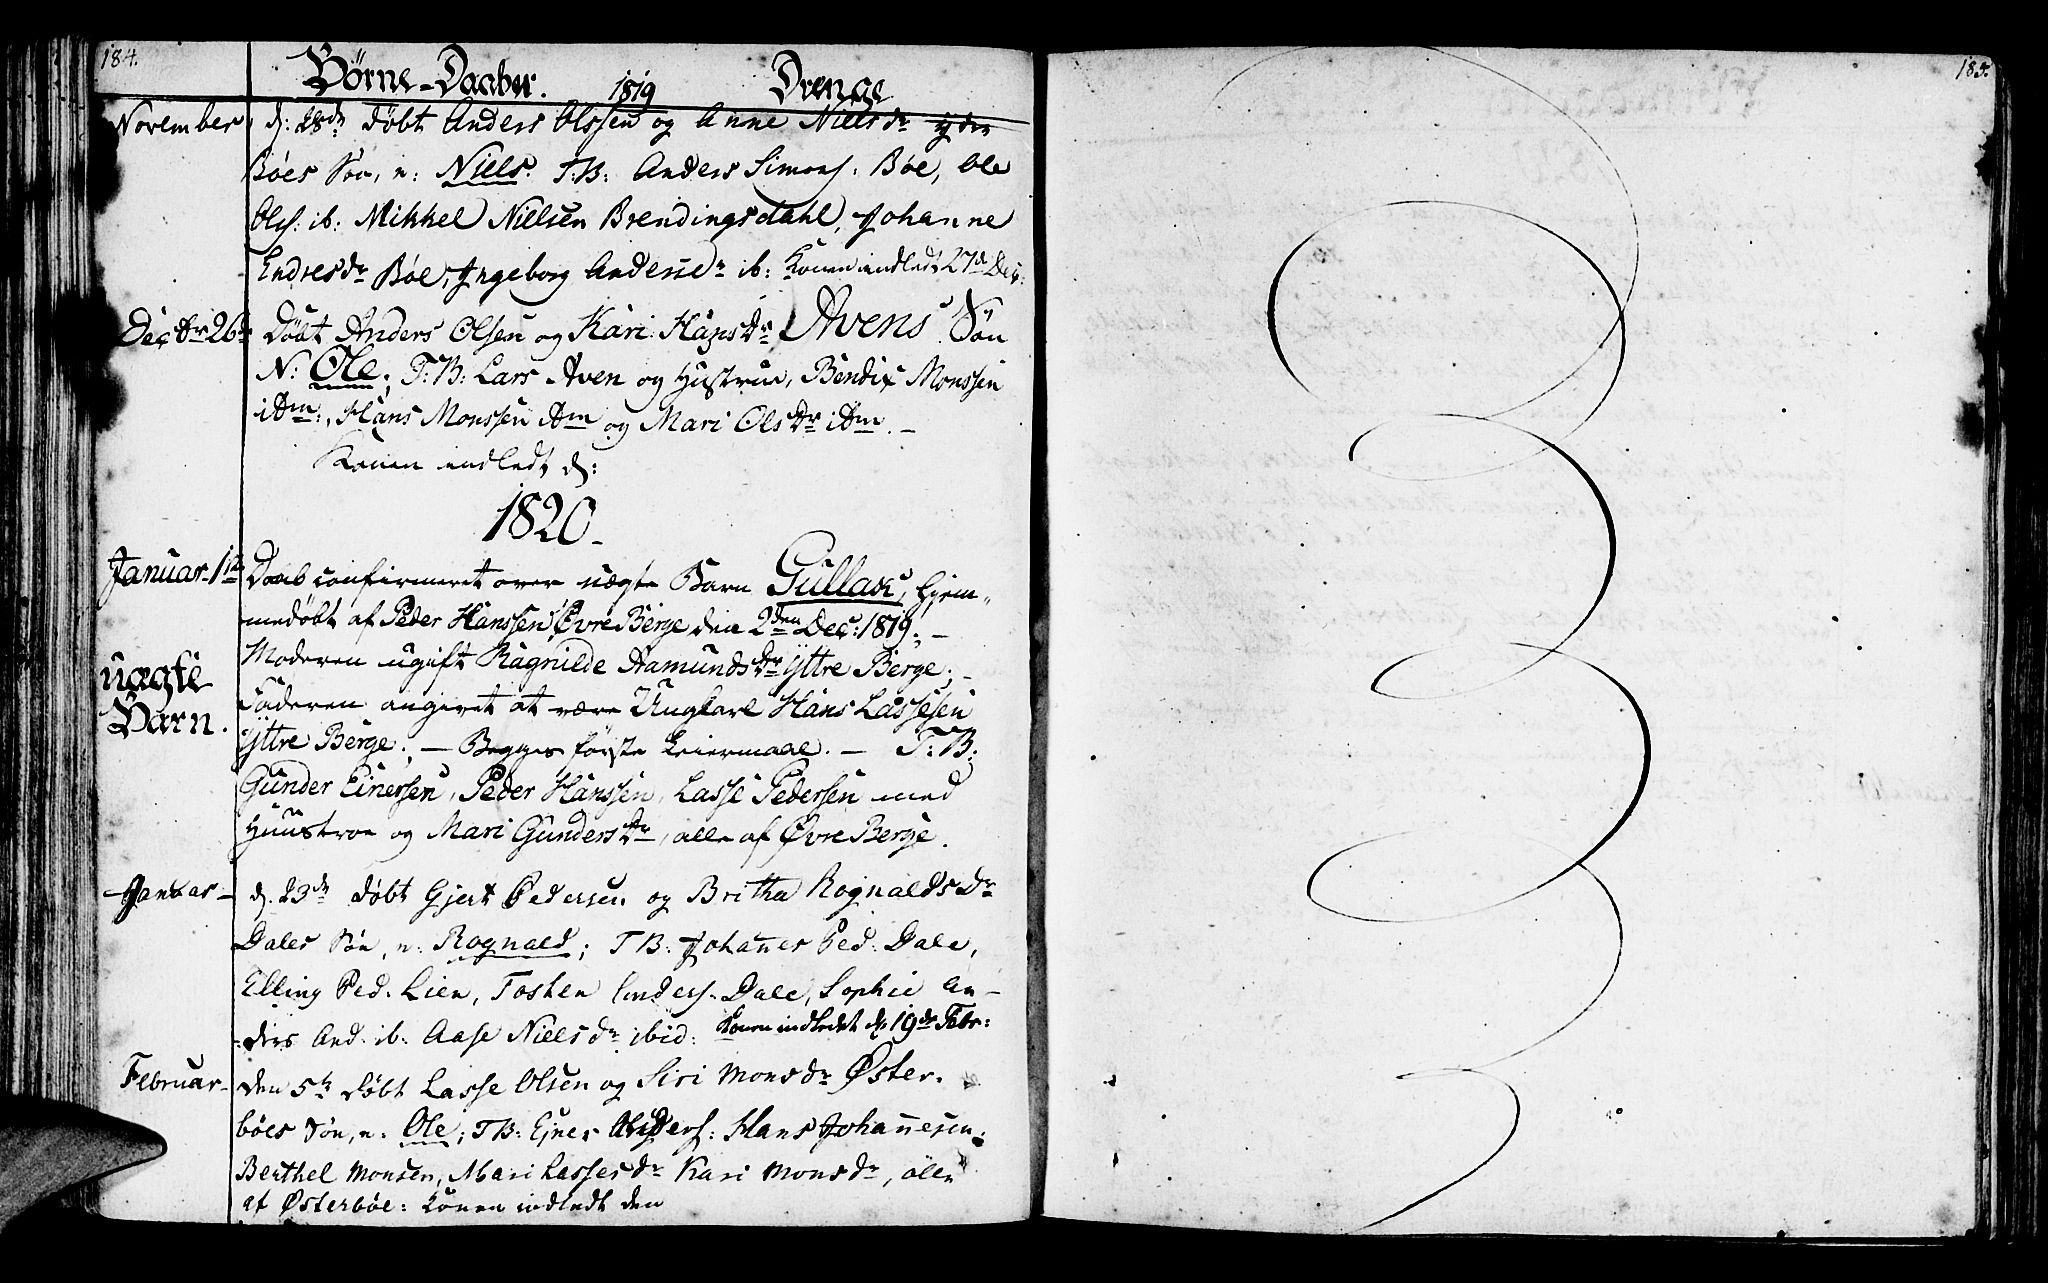 184.
Börne-Daaber. 1819 Drenge
November d: 28de Döbt Anders Olssen og Anne Nielsdr
Böes Sön, n: Niels. T.B: Anders Simons: Böe, Ole
Ols: ib: Mikkel Nielsen Brendingsdahl, Johanne
Endresdr Böe, Ingeborg Andersdr ib: Konen indledt 27de Dec:
Decbr 26de Döbt Anders Olsen og Kari Hansdr Avens Sön
N: Ole; T:B: Lars Aven og Hustrue, Bendix Monssen
ibm:, Hans Monssen ibm og Mari Olsdr ibm. –
Konen indledt d:
1820.
Januar 1ste Daab confirmeret over uægte Barn Gullak, hjem-
medöbt af Peder Hanssen Øvre Berge den 2den Dec: 1819; –
Moderen ugift Ragnilde Aamundsdr Yttre Berge; –
uægte Barn. Faderen angivet at være Ungkarl Hans Lassesen
Yttre Berge; – Begges förste Leiermaal. – T:B:
Gunder Einersen, Peder Hanssen, Lasse Pedersen med
Huustroe og Mari Gundersdr, alle af Øvre Berge.
Januar – d. 23de döbt Gjert Pedersen og Britha Rognaldsdr
Dales Sön, n: Rognald; T B: Johannes Ped: Dale,
Elling Ped. Lien, Tosten Anders. Dale, Sophie An-
ders And. ib: Aase Nielsdr ibid: Konen indledet d. 19de Febr:
Februar – den 5te döbt Lasse Olsen og Siri Monsdr Øster-
böes Sön, n: Ole; T B: Ejner Anders: Hans Johannesen,
Berthel Monsen, Mari Lassesdr Kari Monsdr, alle
af Østerböe: Konen indledt den
185.